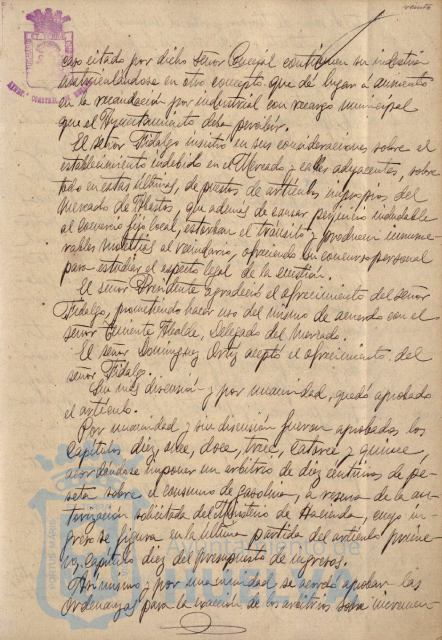 veinte
caso citado por dicho señor Concejal continuen su industria
matriculándose en otro concepto que dé lugar á aumento
en la recaudación por industrial con recargo municipal
que el Ayuntamiento deba percibir.
El señor Fidalgo insistió en sus consideraciones sobre el
establecimiento indebido en el Mercado y calles adyacentes, sobre
todo en estas últimas, de puestos de artículos impropios del
Mercado de Abastos, que además de causar perjuicio indudable
al comercio fijo local, estorban el tránsito y producen innume-
rables molestias al vecindario, ofreciendo su concurso personal
para estudiar el aspecto legal de la cuestión.
El señor Presidente agradeció el ofrecimiento del señor
Fidalgo, prometiendo hacer uso del mismo de acuerdo con el
señor Teniente Alcalde, Delegado del Mercado.
El señor Domínguez Ortiz aceptó el ofrecimiento del
señor Fidalgo.
Sin más discusión y por unanimidad, quedó aprobado
el artículo.
Por unanimidad y sin discusión fueron aprobados los
Capítulos diez, once, doce, trece, catorce y quince,
acordándose imponer un arbitrio de diez céntimos de pe-
seta sobre el consumo de gasolina, a reserva de la au-
torización solicitada del Ministerio de Hacienda, cuyo in-
greso se figura en la última partida del artículo prime-
ro, Capítulo diez del presupuesto de ingresos.
Asimismo y por unanimidad se acordó aprobar las
Ordenanzas para la exacción de los arbitrios sobre incremen-